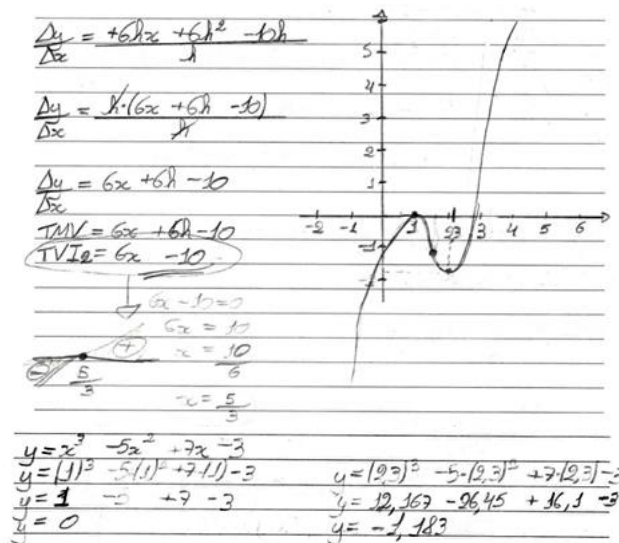 Δy/Δx = +6hx + 6h² - 10h / h
Δy/Δx = h·(6x + 6h - 10) / h
Δy/Δx = 6x + 6h - 10
TMV = 6x + 6h - 10
TVI2 = 6x - 10
6x - 10 = 0
6x = 10
x = 10/6
x = 5/3
- +
5/3
5
4
3
2
1
-2 -1 1 2,3 3 4 5 6
-1
y = x³ - 5x² + 7x - 3
y = (1)³ - 5·(1)² + 7·(1) - 3
y = 1 - 5 + 7 - 3
y = 0
y = (2,3)³ - 5·(2,3)² + 7·(2,3) - 3
y = 12,167 - 26,45 + 16,1 - 3
y = -1,183